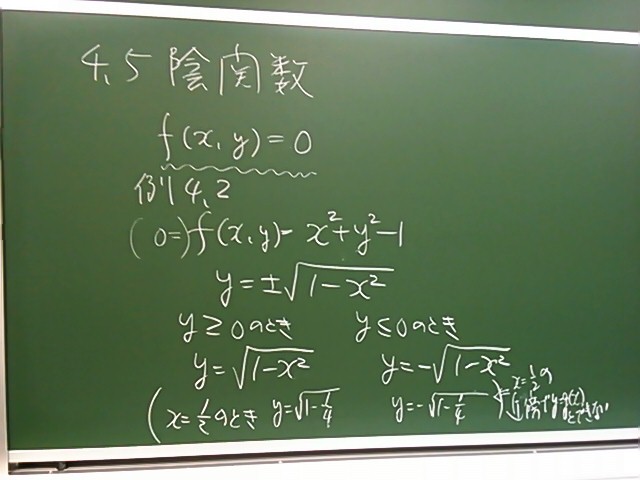 4.5 陰関数
f(x, y) = 0
例 4.2
(0=) f(x, y) = x²+y²-1
y = ±√(1-x²)
y ≥ 0 のとき y ≤ 0 のとき
y = √(1-x²) y = -√(1-x²)
(x = 1/2 のとき y = √(1-1/4) y = -√(1-1/4))
x = 1/2 の
y=y(x)
とできない